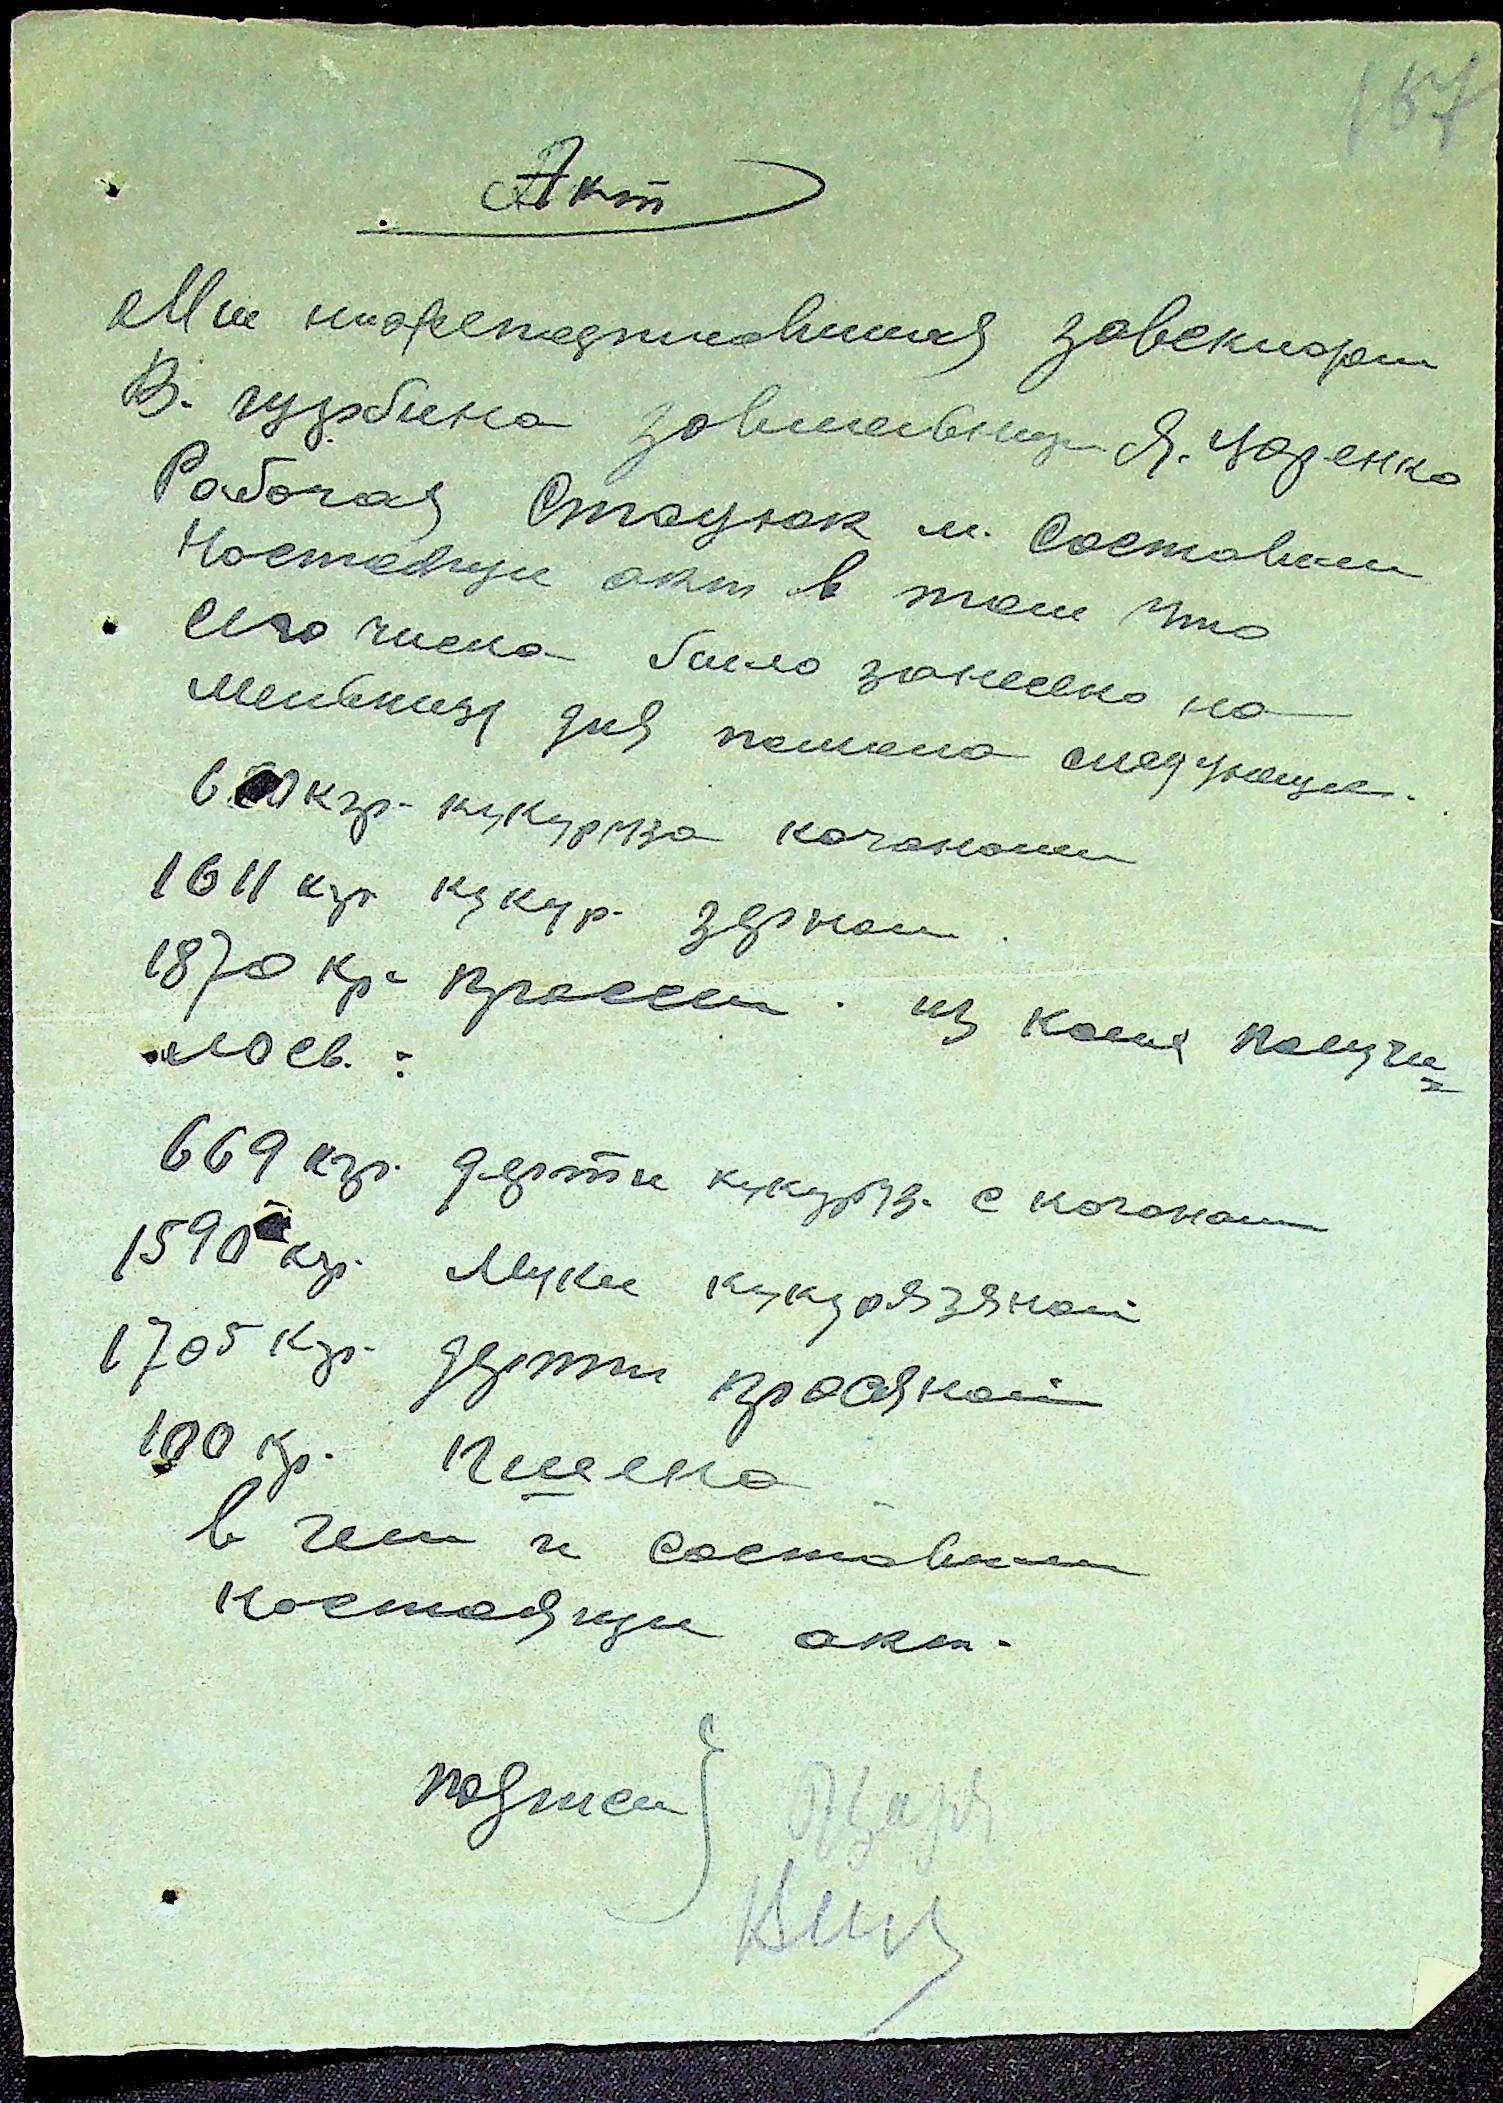 167
Акт
Ми нижеподписавшися завскифери
В. гудзбина завмельнци Я. Царенко
Рабочая Стацюк м. Составили
Настаящи акт в том что
Сего числа било занесено на
Мельницу для помола следующи.
кгр. кукуруза кочанами
1611 кгр кукур. зерном.
1870 кр. проссы. из коих получи=
лось. :
669 кгр. дерти кукуруз. с кочанами
1590 кгр. Муки кукурязяной
1705 кгр. дерти просяной
100 кр. Пшена
в чем и составили
настаящи акт.
подписи
Яцаря